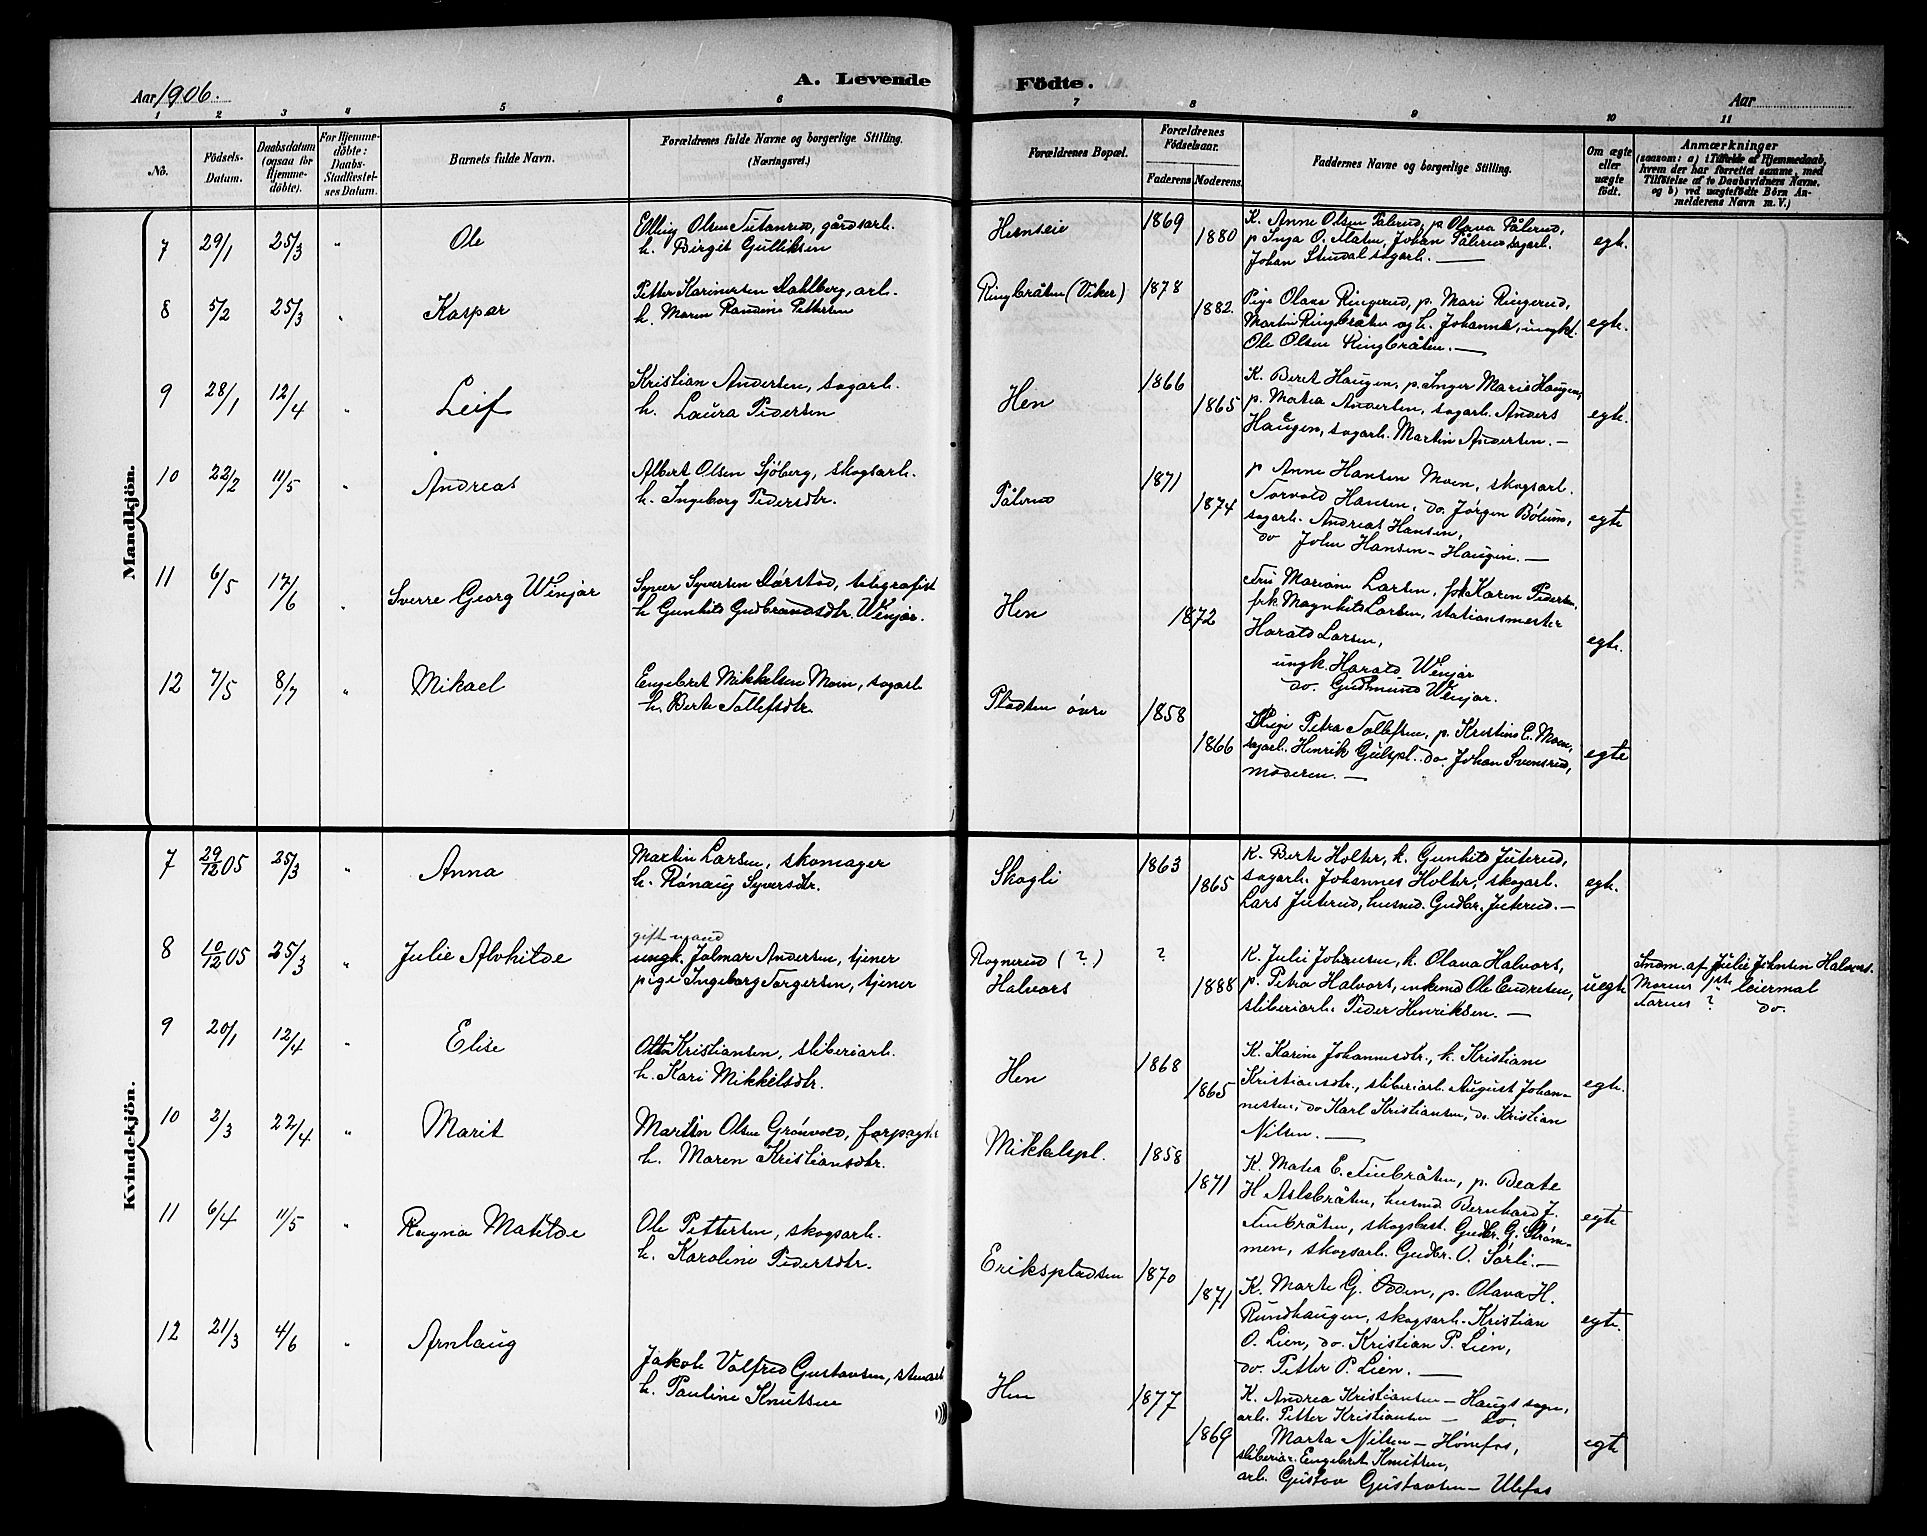 Aar 1906.
A. Levende Födte.
Aar
1 2 3 4 5 6 7 8 9 10 11
No.
Födsels-
Datum.
Daabsdatum
(ogsaa for
Hjemme-
döbte).
For Hjemme-
döbte:
Daabs-
Stadfæstel-
ses Datum.
Barnets fulde Navn.
Forældrenes fulde Navne og borgerlige Stilling.
(Næringsvei.)
Forældrenes Bopæl.
Forældrenes
Födselsaar.
Faderens Moderens.
Faddernes Navne og borgerlige Stilling.
Om ægte
eller
uægte
födt.
Anmærkninger
(saasom: a) i Tilfælde af Hjemmedaab,
hvem der har forrettet samme, med
Tilföielse af to Daabsvidners Navne,
og b) ved uægtefödte Börn An-
melderens Navn m. V.)
Mandkjön.
7 29/1 25/3 " Ole
Elling Olsen gårdsarb.
h. Birgit Gulliksen
Hernseie 1869 1880
K. Anne Olsen Pålerud, p. Olava Pålerud,
p Inga O. Moten, Johan Pålerud sagarb.
Johan Stendal sagarb. —
egte.
8 5/2 25/3 " Kaspar
Petter Karinersen Dahlberg, arb.
h. Maren Randine Pettersen
Ringbråten (Viker) 1878 1882
Pige Olava Ringerud, p. Mari Ringerud,
Martin Ringbråten og h. Johanne, ungk.
Ole Olsen Ringbråten. —
egte.
9 28/1 12/4 " Leif
Kristian Andersen, sagarb.
h. Laura Pedersen
Hen 1866 1865
K. Beret Haugen, p. Inger Marie Haugen,
p. Matea Andersen, sagarb. Anders
Haugen, sagarb. Martin Andersen. —
egte.
10 22/2 11/5 " Andreas
Albert Olsen Sjöberg, skogsarb.
h. Ingeborg Pedersdtr.
Pålerud 1871 1874
p Anne Hansen Moen, skogsarb.
Torvald Hansen, do. Jørgen Bölum,
sagarb. Andreas Hansen,
do John Hansen - Haugen. —
egte
11 6/5 17/6 " Sverre Georg Wenjar
Syver Syversen Dårstad, telegrafist
h Gunhild Gudbrandsdtr. Wenjar.
Hen 1872
Fru Mariane Larsen, frk Karen Pedersen,
frk. Magnhild Larsen, stationsmester
Harald Larsen,
ungk. Harald Wenjar
do. Gudmund Wenjar.
egte.
12 7/5 8/7 " Mikael
Engebret Mikkelsen Moen, sagarb
h. Berte Tollefsdtr.
Pladsen övre 1858 1866
Pige Petra Tollefsen, p. Kristine E. Moen,
sagarb. Henrik Gulspl. do. Johan Svensrud,
moderen. —
egte
Kvindekjön.
7 29/12 05 25/3 " Anna
Martin Larsen, skomager
h. Rönaug Syversdtr.
Skogli 1863 1865
K. Berte Holter, k. Gunhild Juterud,
sagarb. Johannes Holter, skogarb.
Lars Juterud, husmd. Gudbr. Juterud. —
egte.
8 10/12 05 25/3 " Julie Alvhilde
gift mand
ungk. Jalmar Andersen, tjener
pige Ingeborg Torgersen, tjener
Rognerud (?)
Halvors
? 1888
K. Julie Johansen, k. Olava Halvors,
p. Petra Halvors, enkemd Ole Endresen,
sliberiarb. Peder Henriksen. —
uegte
Anm. af Julie Johnsen Halvors.
Morens 1ste leiermal
Farens ? do.
9 20/1 12/4 " Elise
Otto Kristiansen, sliberiarb.
h. Kari Mikkelsdtr.
Hen 1868 1865
K. Karine Johannesdtr., k. Kristiane
Kristiansdtr., sliberiarb. August Johan-
nessen, do Karl Kristiansen, do. Kristian
Nilsen. —
egte.
10 2/3 22/4 " Marit
Martin Olsen Grönvold, forpagter
h. Maren Kristiansdtr.
Mikkelspl. 1858 1871
K. Matea E. Finbråten, p. Beate
H Aslebråten, husmd Bernhard J.
Finbråten, skogsbest. Gudbr. G. Strøm-
men, skogsarb. Gudbr. O. Sørli. —
egte
11 6/4 11/5 " Ragna Matilde
Ole Pettersen, skogsarb.
h. Karoline Pedersdtr.
Erikspladsen 1870 1871
K. Marte G. Odden, p. Olava H.
Rundhaugen, skogsarb. Kristian
O. Lien, do. Kristian P. Lien,
do. Petter P. Lien. —
egte.
12 21/3 4/6 " Arnlaug
Jakob Valfred Gustavsen, stenarb
h. Pauline Knutsen
Hen 1877 1869
K. Andrea Kristiansen — Haugs sogn,
arb. Petter Kristiansen — do
Marta Nilsen — Hönefos,
sliberiar. Engebret Knutsen,
arb. Gustav Gustavsen — Ulefos
egte